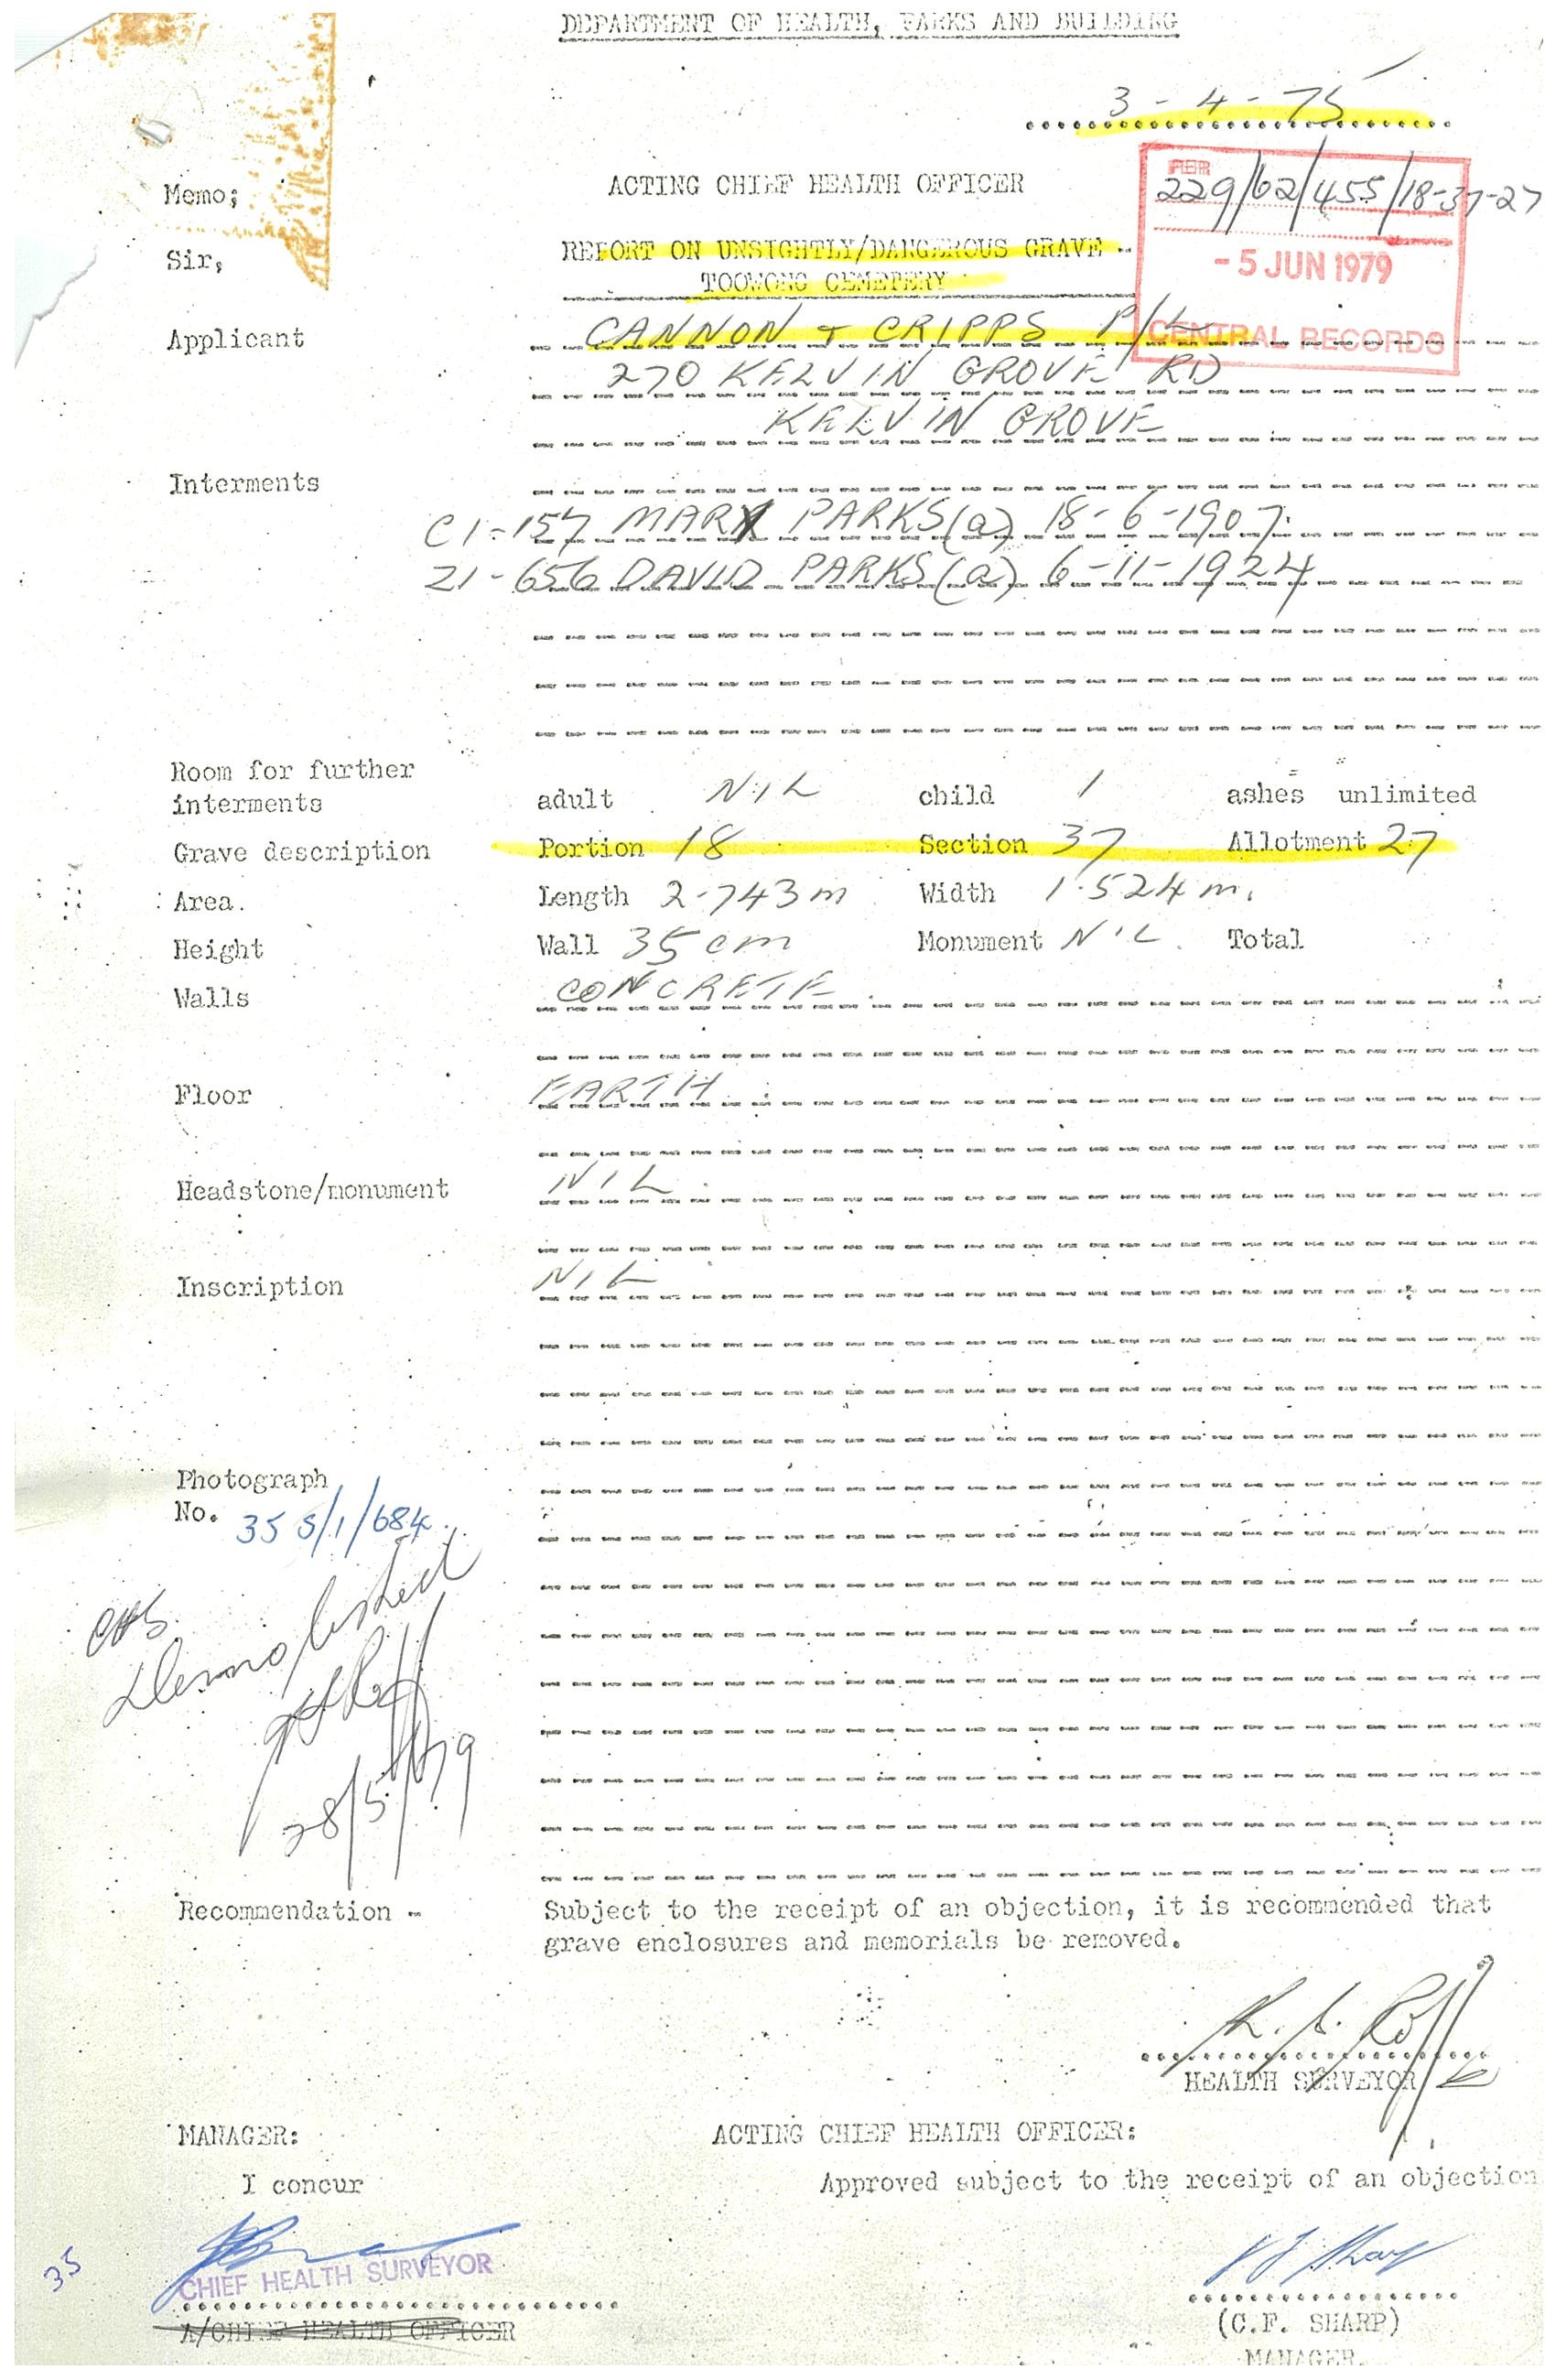 DEPARTMENT OF HEALTH, PARKS AND BUILDING
3-4-75
Memo; ACTING CHIEF HEALTH OFFICER
229/62/455/18-37-27
Sir, REPORT ON UNSIGHTLY/DANGEROUS GRAVE -
TOOWONG CEMETERY
- 5 JUN 1979
CENTRAL RECORDS
Applicant CANNON + CRIPPS P/L
270 KELVIN GROVE RD
KELVIN GROVE
Interments
C1-157 MARY PARKS (a) 18-6-1907.
21-656 DAVID PARKS (a) 6-11-1924
Room for further
interments adult NIL child 1 ashes unlimited
Grave description Portion 18 Section 37 Allotment 27
Area. Length 2.743m Width 1.524m.
Height Wall 35cm Monument NIL. Total
Walls CONCRETE.
Floor EARTH
Headstone/monument NIL.
Inscription NIL
Photograph
No. 35 S/1/684.
CHS
Demolished
28/5/79
Recommendation - Subject to the receipt of an objection, it is recommended that
grave enclosures and memorials be removed.
HEALTH SURVEYOR
MANAGER: ACTING CHIEF HEALTH OFFICER:
I concur Approved subject to the receipt of an objection
35
CHIEF HEALTH SURVEYOR
A/CHIEF HEALTH OFFICER
(C.F. SHARP)
MANAGER.